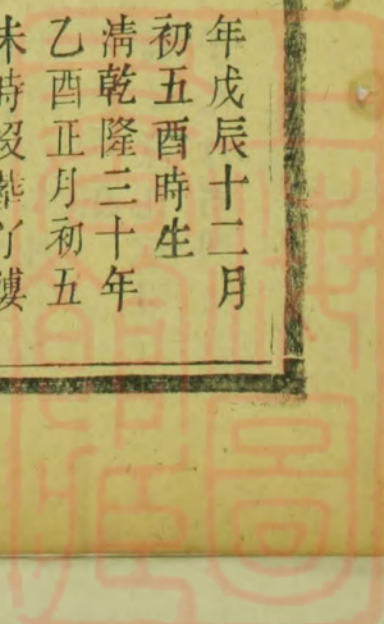 年戊辰十二月
初五酉時生
清乾隆三十年
乙酉正月初五
未時歿葬丫